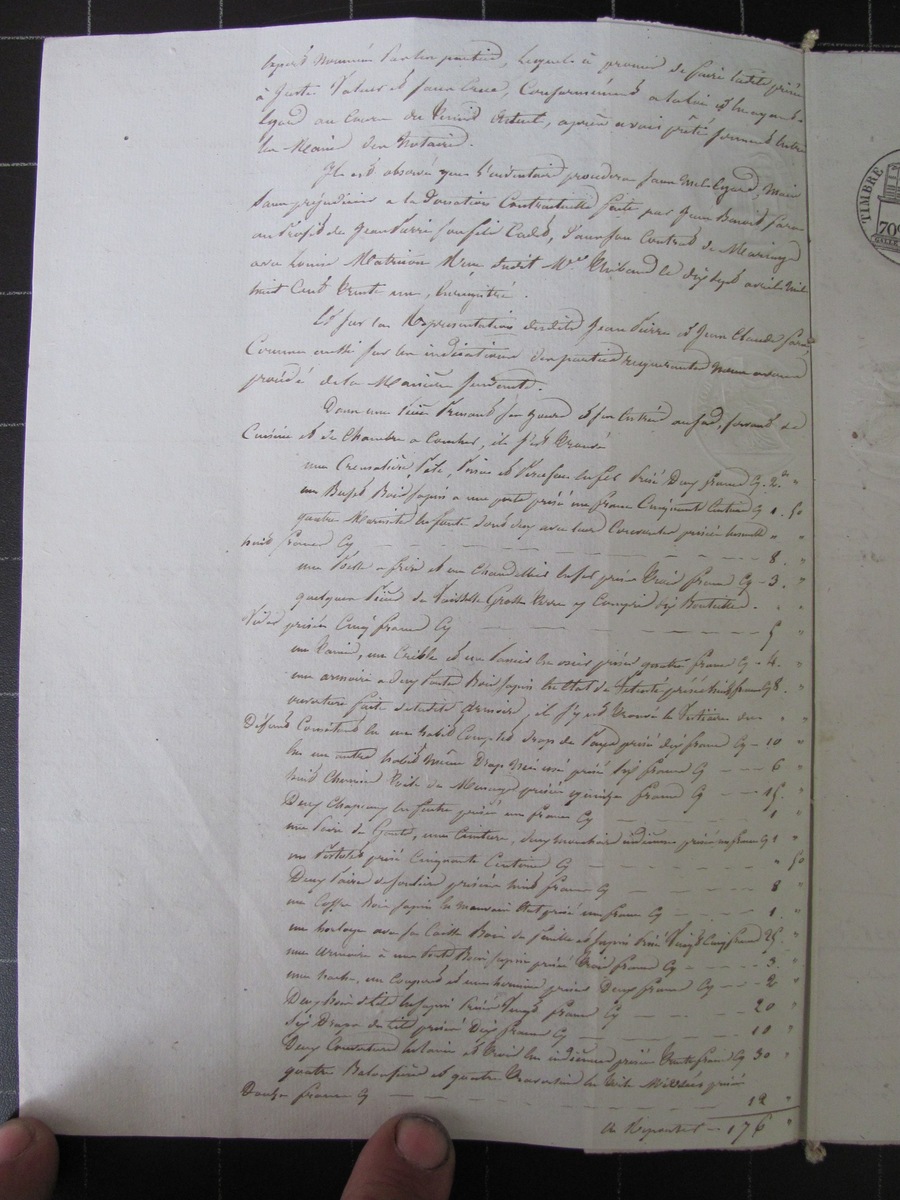 experts nommés par les parties, lequel a promis de faire ladite prisée
à juste valeur et sans crue, conformément à la loi et eu égard
au cours du temps actuel, après avoir prêté serment entre
les mains du notaire.
Il est observé que l'inventaire procédera sans
sans préjudicier à la Donation Contractuelle faite par Jean Benoit
au profit de Jean Pierre son fils cadet, dans son Contrat de Mariage
avec Louise reçu dudit Me le dix sept avril mil
huit cent vingt un, enregistré.
Et sur la Représentation desdits Jean Pierre et Jean Claude
Comme aussi sur les indications des parties requérantes nous avons
procédé de la Manière suivante.
Dans une pièce prenant son jour et son entrée au servant de
Cuisine et de Chambre à Coucher, il s'est trouvé
une Cremaillère, Pele, Pince et en fer Prisé Deux francs Cy - 2 "
un Buffet Bois sapin à une porte prisé un franc Cinquante Centimes Cy 1. 50
quatre Marmites en fonte dont deux avec leur Couvercles prisées ensemble " "
huit francs Cy 8. "
une Poële à frire et un Chandellier en fer prisés Trois francs Cy - 3. "
quelques Pièces de Vaisselle Grosse Terre y Compris dix Bouteilles " "
Vides prisées Cinq francs Cy 5 "
un Panier, un Crible et un Panier en osier prisés quatre francs Cy - 4. "
une armoire à deux Portes Bois sapin en Etat de prisée huit francs Cy 8. "
ouverture faite de ladite Armoire, il s'y est trouvé le Vestiaire du " "
Défunt Consistant en un habit Complet drap de Pays prisé dix francs Cy - 10 "
en un autre habit même Drap très usé prisé six francs Cy - 6 "
huit Chemises Toile de Ménage prisées quinze francs Cy - 15. "
Deux Chapeaux en feutre prisés un franc Cy 1 "
une Paire de Gants, une Ceinture, deux mouchoirs indienne prisés un franc Cy 1 "
un prisé Cinquante Centimes Cy " 50
Deux Paires de souliers prisées huit francs Cy 8 "
un Coffre Bois sapin en mauvais Etat prisé un franc Cy 1. "
un horloge avec sa Caisse Bois de et sapin Prisé Vingt Cinq francs 25. "
une Armoire à une Porte Bois sapin prisée Trois francs Cy - 3. "
une hache, un Couperet et une prisés Deux francs Cy - 2 "
Deux bois de lit en sapin Prisés Vingt francs Cy 20 "
Six Draps de lit prisés Dix francs Cy 10 "
Deux Couvertures en laine et Trois en indienne prisées Trente francs Cy 30 "
quatre et quatre Traversins en Toile prisés
Douze francs Cy 12 "
à Reporter - 176 "
TIMBRE
70